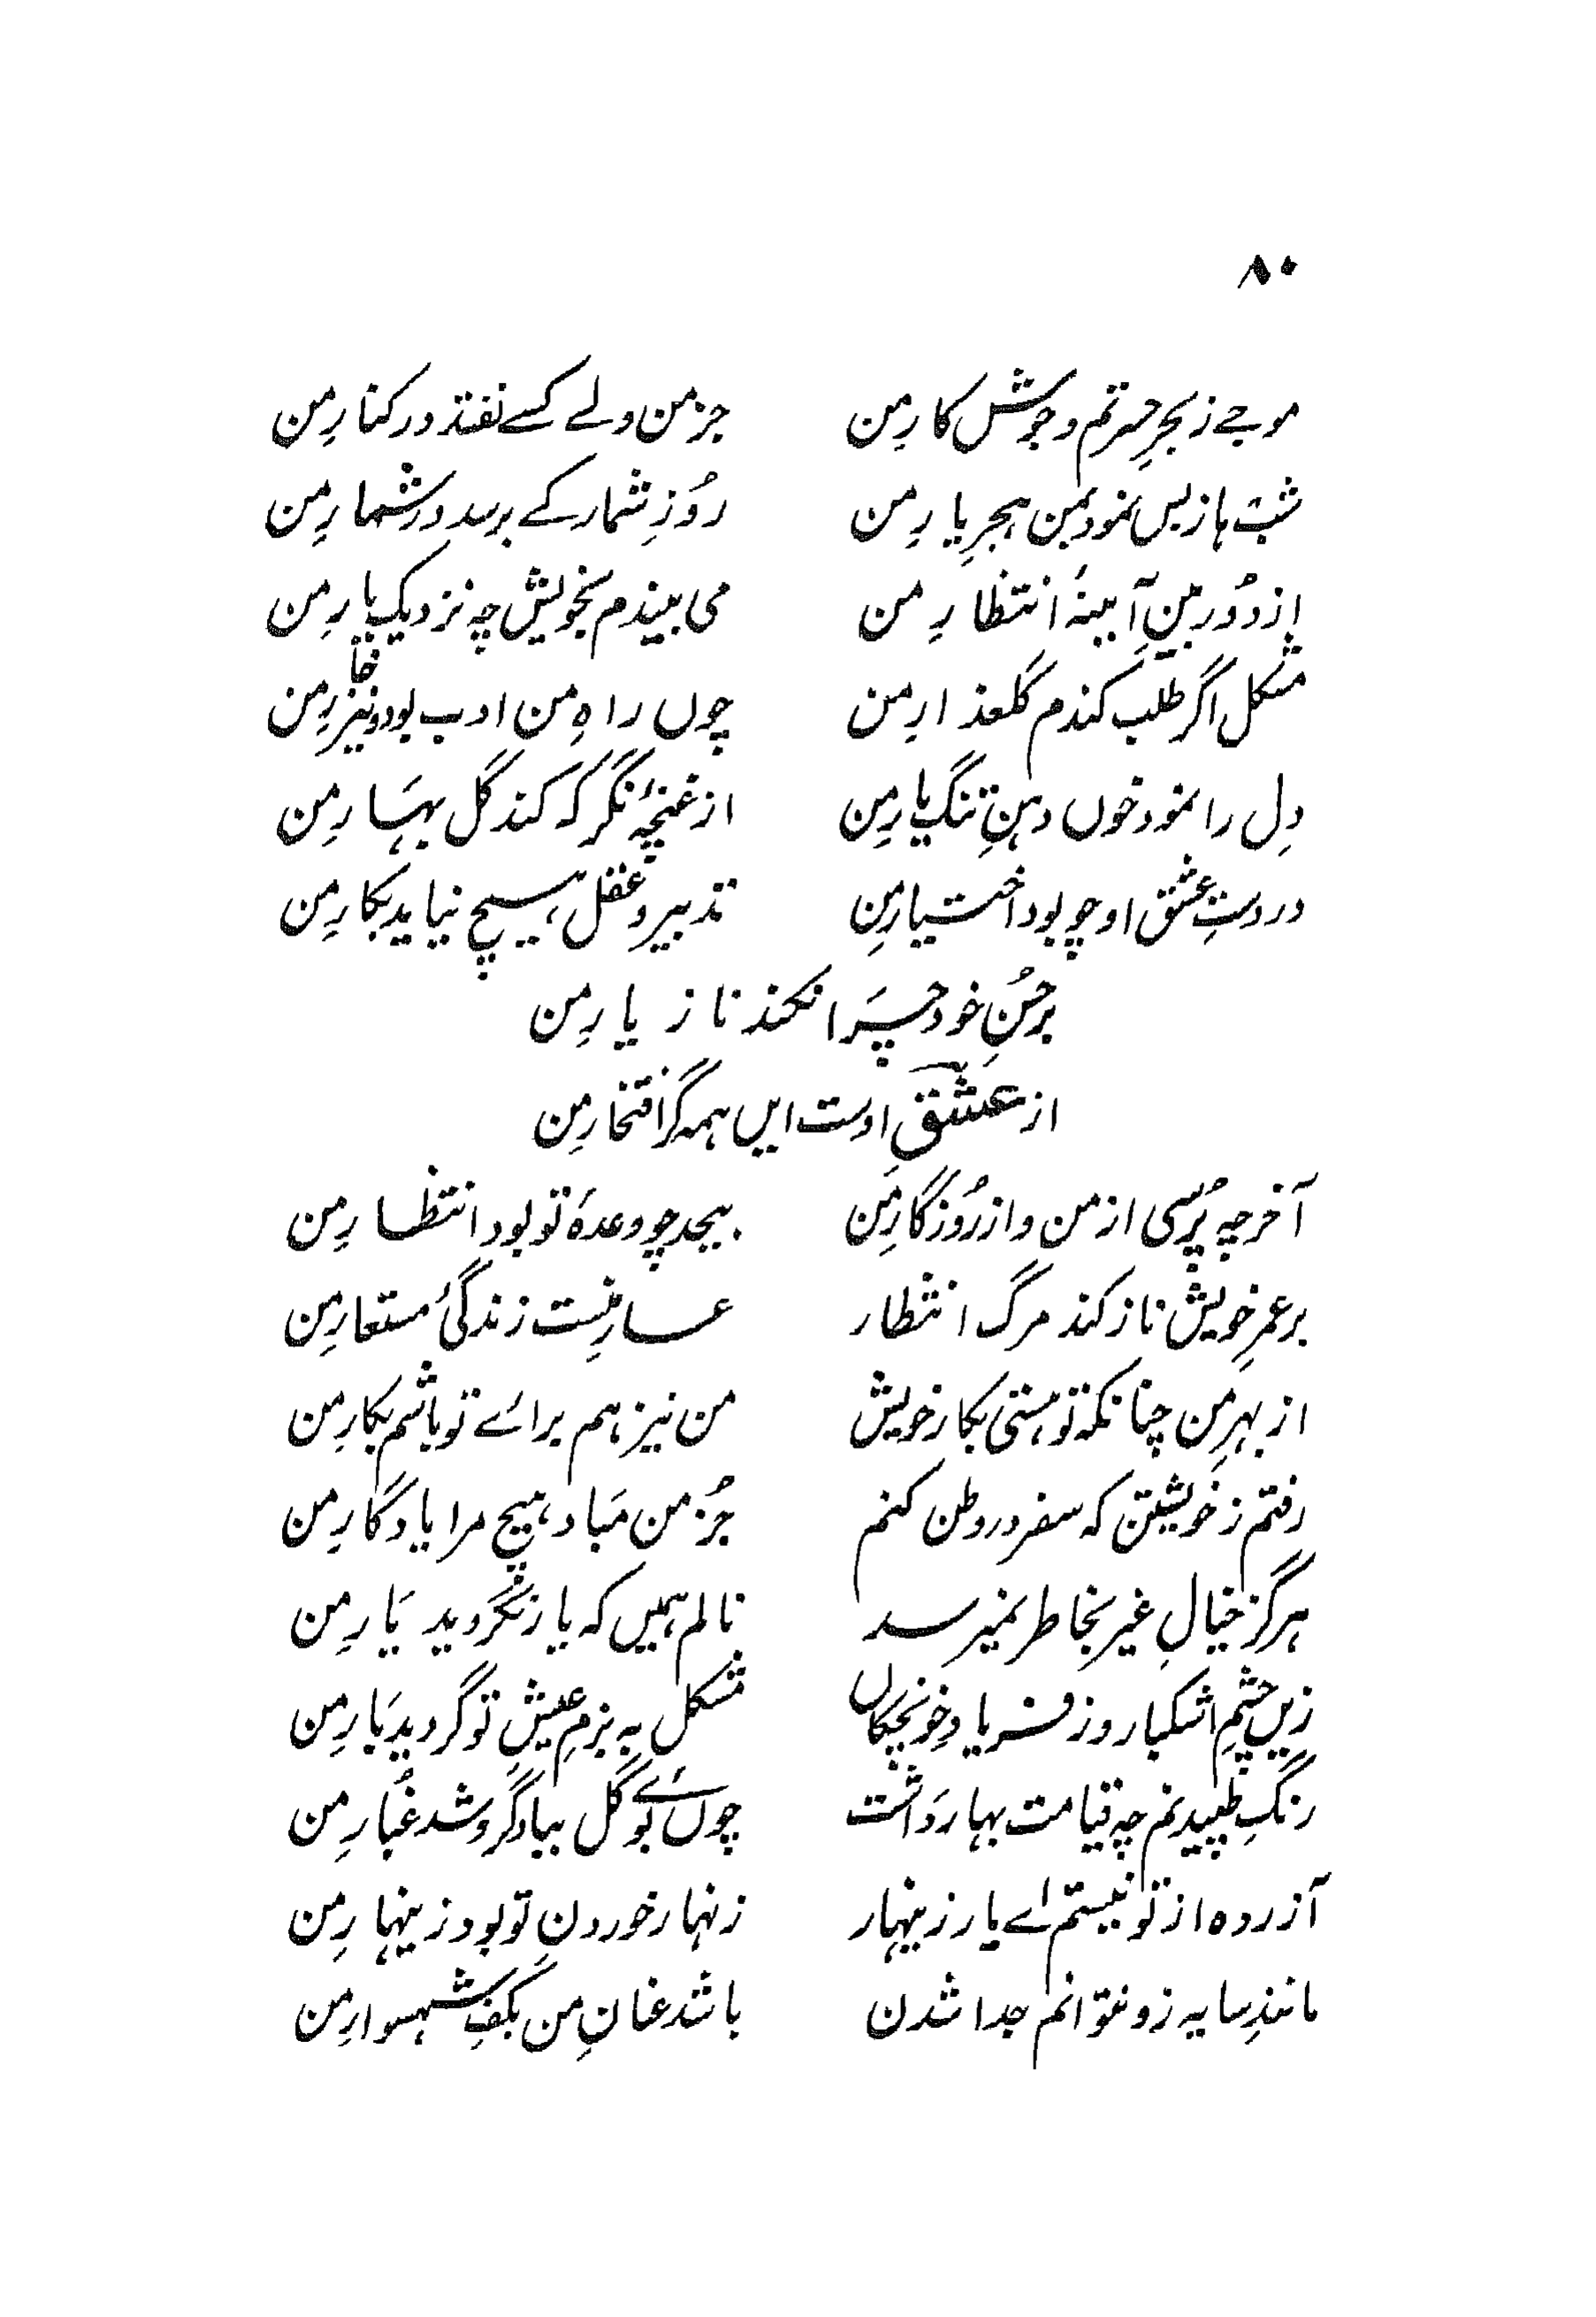 ۸۰
موجے ز بحرِ حسرتم و جوشش کارِ من جز من ولے کسے نفتد در کنارِ من
شب ہا ز بس نمود بمن ہجرِ یارِ من روُزِ شمار کے برسد در شمارِ من
از دوُر بینِ آئینۂ انتظارِ من می بیندم بخویش چہ نزدیک یارِ من
مشکل اگر طلب کندم گلعذارِ من چوں راہِ من ادب بود و نیز خارِ من
دِل را نمود خوں دہنِ تنگِ یارِ من از غنچۂ نگر کہ کند گل بہارِ من
در دستِ عشق او چو بود اختیارِ من تدبیر و عقل، ہیچ نیاید بکارِ من
بر حُسنِ خود چرا نکند ناز یارِ من
از عشقِ اوست ایں ہمہ گر افتخارِ من
آخر چہ پُرسی از من و از رُوزگارِ من بیحد چو وعدۂ تو بود انتظارِ من
بر عمرِ خویش ناز کند مرگ انتظار عارِ منست زندگیٔ مستعارِ من
از بہرِ من چنانکہ تو ہستی بکارِ خویش من نیز ہم برائے تو باشم بکارِ من
رفتم ز خویشتن کہ سفر در وطن کنم جُز من مَباد، ہیچ مرا یادگارِ من
ہرگز خیالِ غیر بخاطر نمیرسد نالم ہمیں کہ یار نگردید یَارِ من
زیں چشمِ اشکبار و ز فریادِ خونچکاں مشکل بہ بزمِ عیشِ تو گردید بَارِ من
رنگِ طپیدنم چہ قیامت بہار دَاشت چوں بُوئے گل بباد گرو شد غُبارِ من
آزردہ از تو نیستم اے یار زینہار زنہار خوردنِ تو بود زینہارِ من
مانندِ سایہ زو نتوانم جدا شدن باشد عنانِ من بکفِ شہسوارِ من